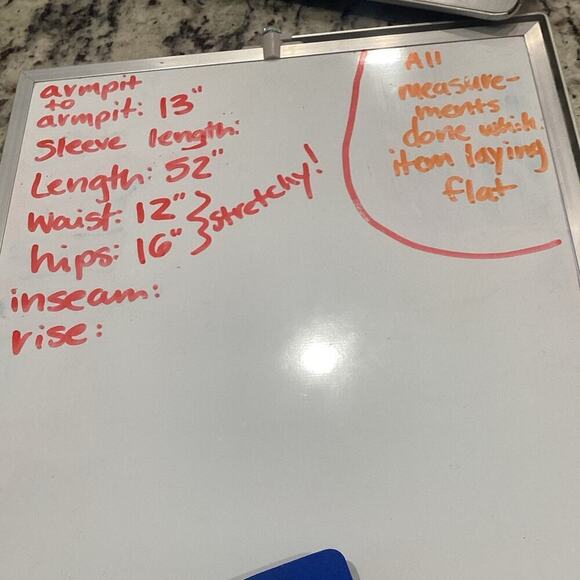 armpit
to
armpit: 13"
Sleeve length:
Length: 52"
Waist: 12"
hips: 16"
stretchy!
inseam:
rise:
All
measure-
ments
done which
item laying
flat